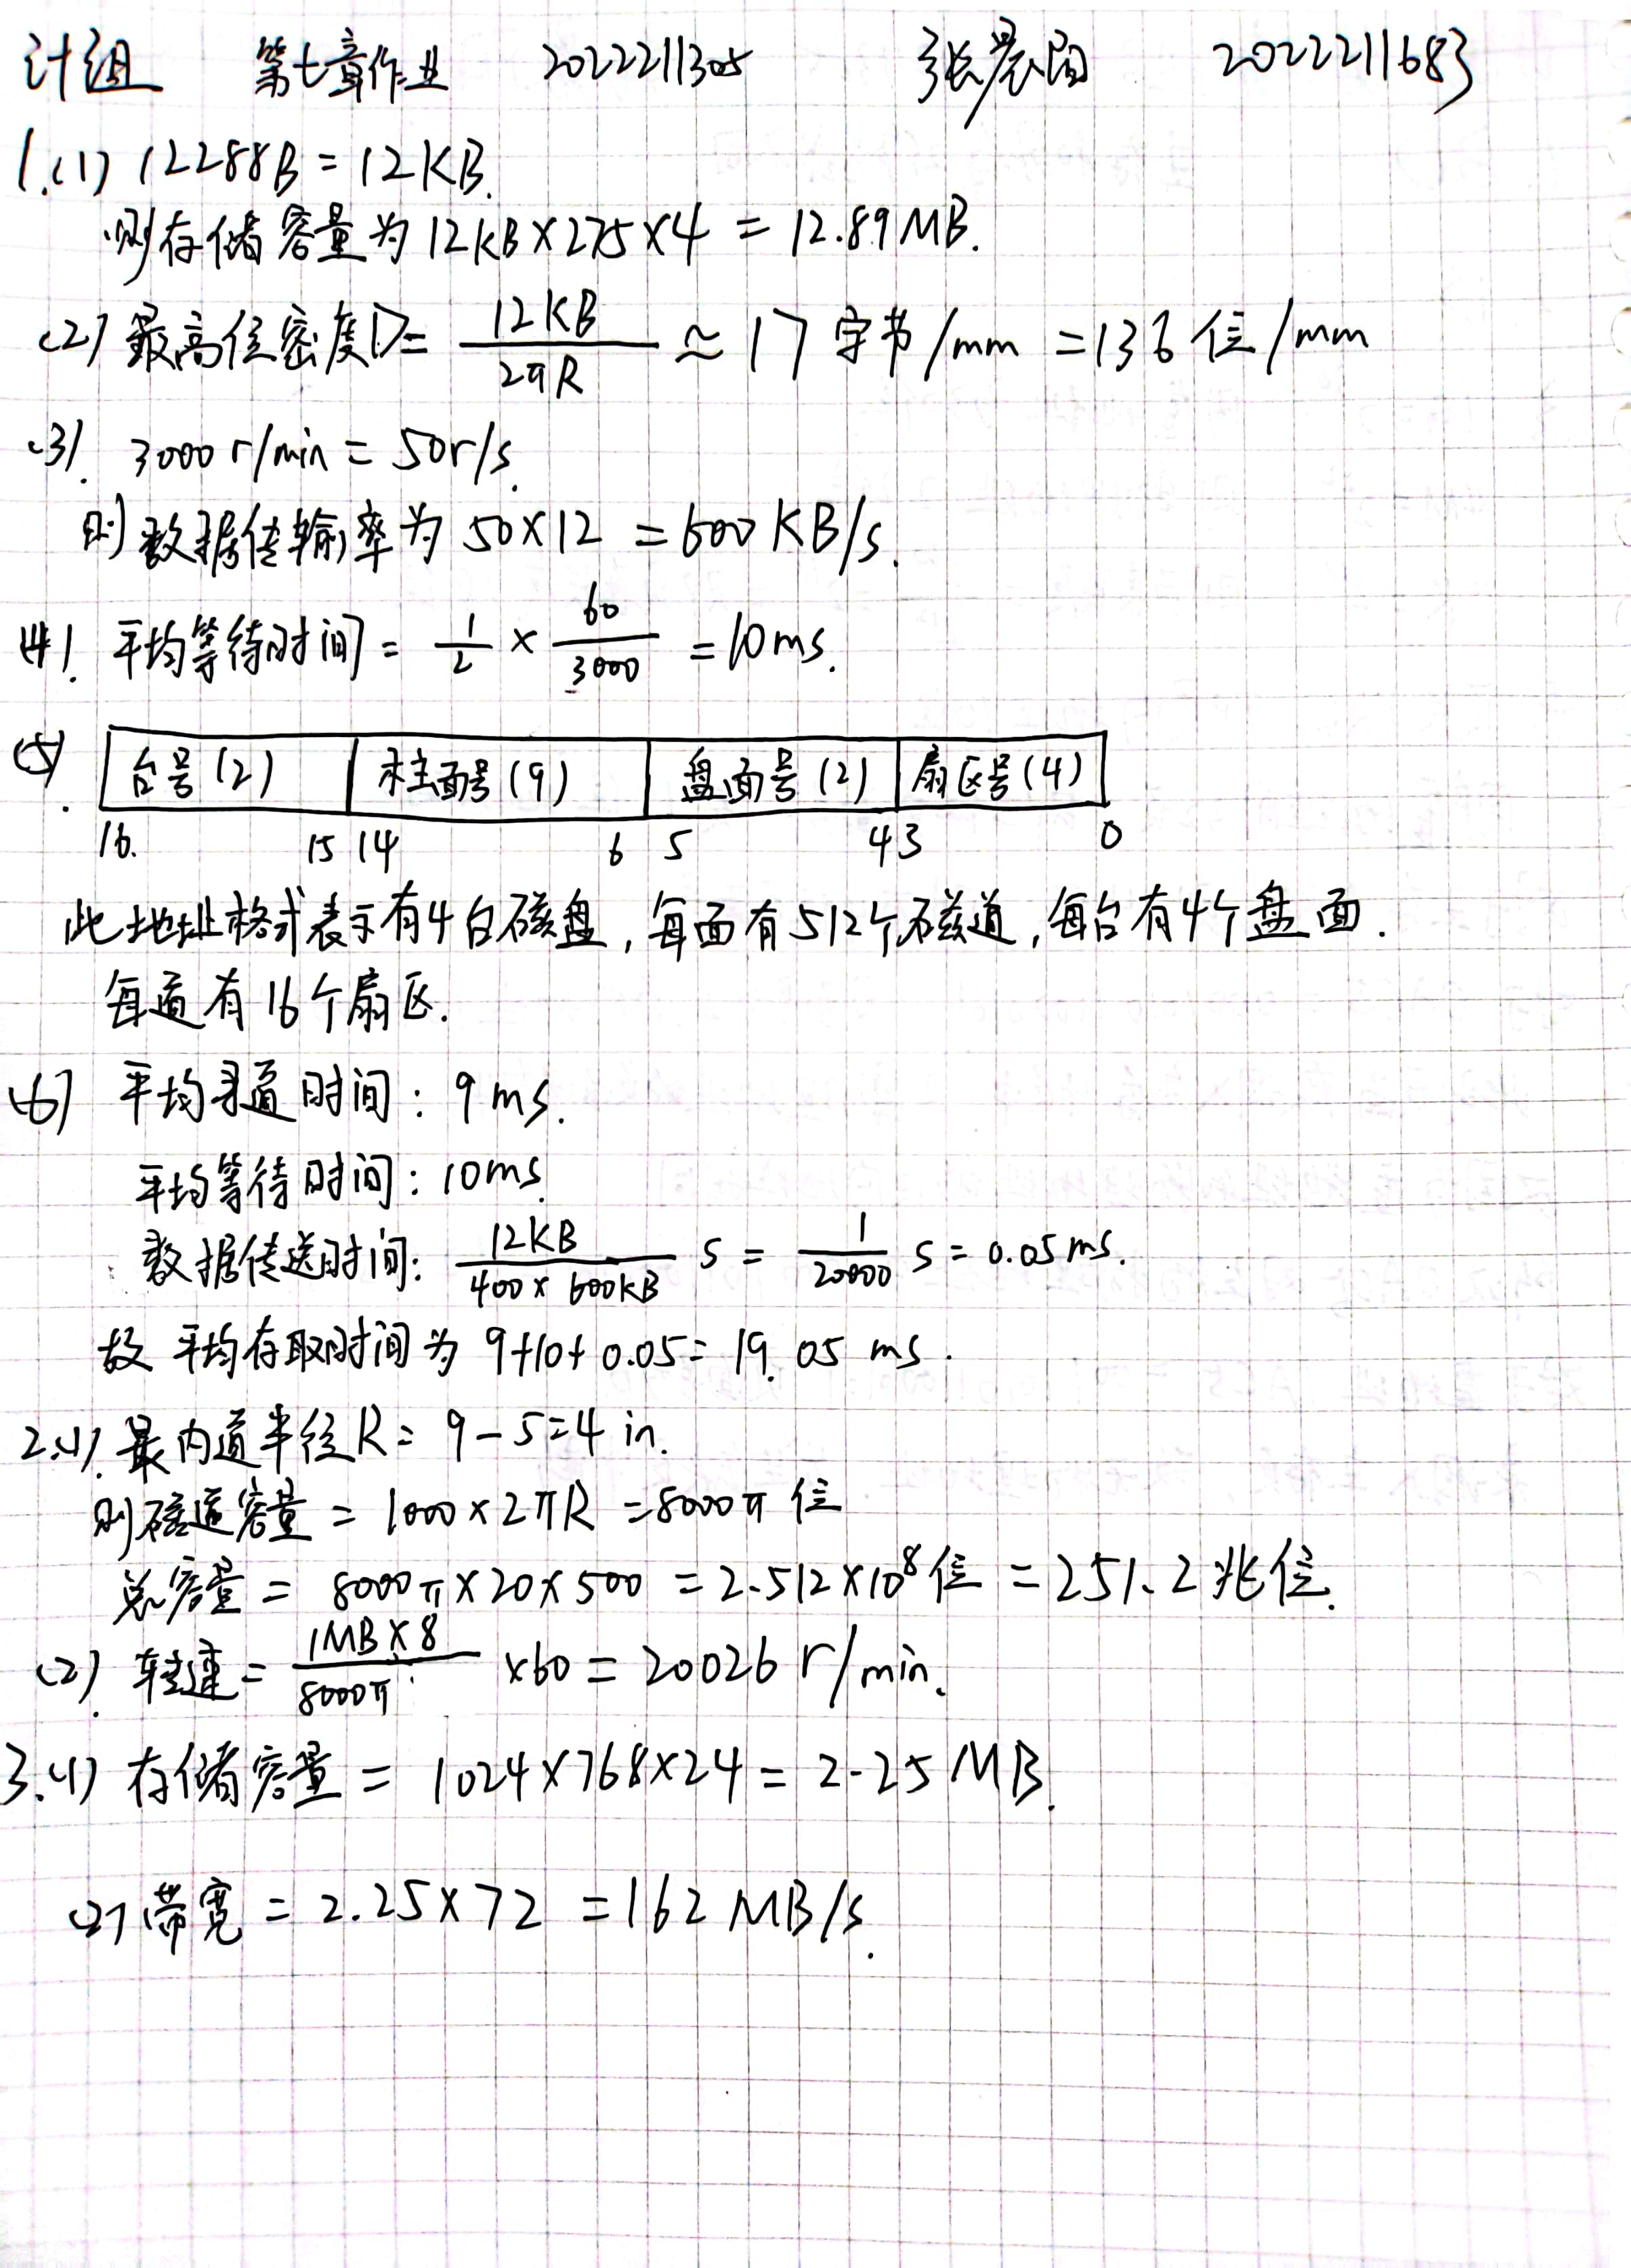 计组 第七章作业 2022211305 张晨阳 2022211683
1.(1) 12288B = 12KB.
则存储容量为 12KB×275×4 = 12.89MB.
(2) 最高位密度D= 12KB/2πR ≈ 17 字节/mm =136 位/mm
(3). 3000 r/min = 50r/s.
则数据传输率为 50×12 =600 KB/s.
(4). 平均等待时间 = 1/2 × 60/3000 =10ms.
(5). 台号(2) 柱面号(9) 盘面号(2) 扇区号(4)
16. 15 14 6 5 4 3 0
此地址格式表示有4台磁盘,每面有512个磁道,每台有4个盘面.
每道有16个扇区.
(6) 平均寻道时间: 9ms.
平均等待时间: 10ms.
数据传送时间: 12KB/400×600KB s = 1/20000 s = 0.05ms.
故 平均存取时间为 9+10+0.05= 19.05 ms.
2.(1). 最内道半径R= 9-5=4 in.
则磁道容量 = 1000×2πR =8000π 位
总容量 = 8000π×20×500 =2.512×10⁸位 =251.2兆位.
(2). 转速= 1MB×8/8000π ×60 = 20026 r/min.
3.(1) 存储容量 = 1024×768×24= 2.25MB.
(2) 带宽 = 2.25×72 =162 MB/s.